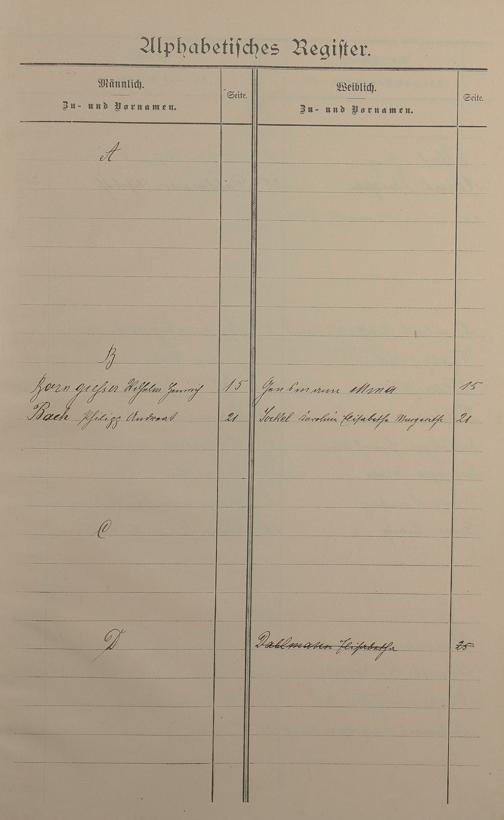 Alphabetisches Register.
Männlich.
Zu- und Vornamen.
Seite.
Weiblich.
Zu- und Vornamen.
Seite.
A
B
Borngießer Wilhelm Heinrich 15 Mina 15
Bach Philipp Andreas 21 Jockel Karoline Elisabetha Margaretha 21
C
D Elisabetha 25